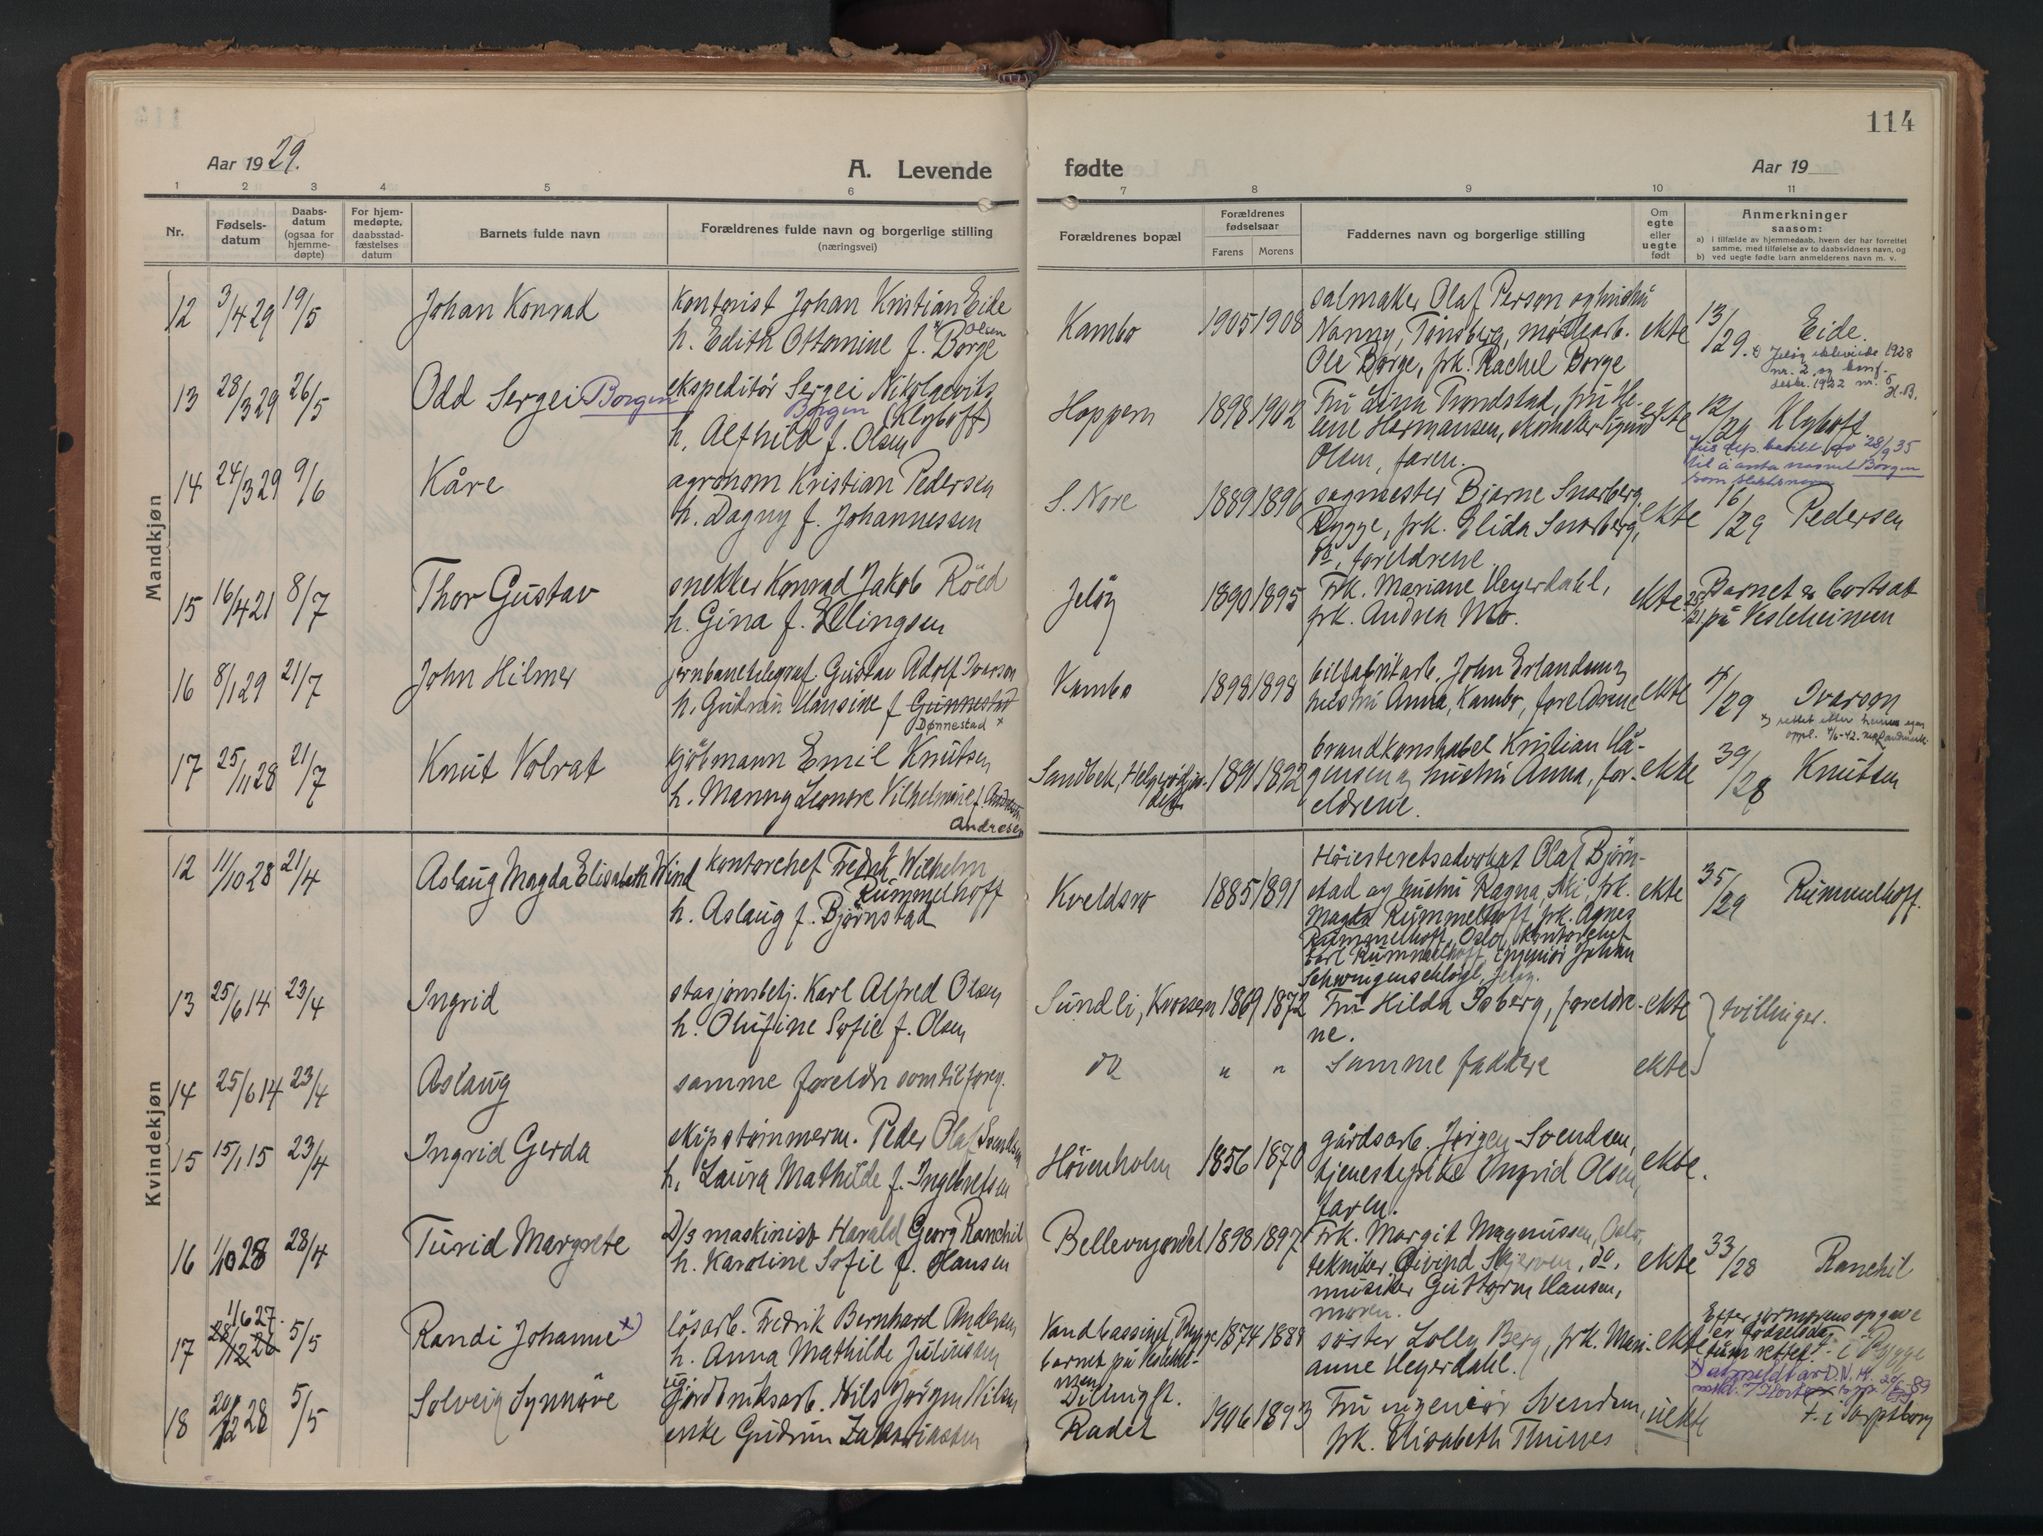 114
Aar 1929.
A. Levende
fødte
Aar 19
1 2 3 4 5 6 7 8 9 10 11
Nr.
Fødsels-
datum
Daabs-
datum
(ogsaa for
hjemme-
døpte)
For hjem-
medøpte,
daabsstad-
fæstelses
datum
Barnets fulde navn
Forældrenes fulde navn og borgerlige stilling
(næringsvei)
Forældrenes bopæl
Forældrenes
fødselsaar
Farens Morens
Faddernes navn og borgerlige stilling
Om
egte
eller
uegte
født
Anmerkninger
saasom:
a) i tilfælde av hjemmedaab, hvem der har forrettet
samme, med tilføielse av to daabsvidners navn, og
b) ved uegte fødte barn anmelderens navn m. v.
Mandkjøn
12 3/4 29 19/5 Johan Konrad
kontorist Johan Kristian Eide
h. Edith Ottomine f. Olsen
Borge
Kambo 1905 1908
salmaker Olaf Person og hustru
Nanny, Tønsberg, møllearb.
Ole Borge, frk. Rachel Borge
ekte 13/29. Eide.
13 28/3 29 26/5 Odd Sergei Borgen
ekspeditør Sergei Nikolaevits
Borgen (Klyhoff)
h. Alfhild f. Olsen
Hoppern 1898 1902
Fru Lina Trondstad, fru He-
lene Hermansen, skomaker
Olsen, faren.
ekte 12/29 Klyhoff
28/9 35
til å anta navnet Borgen
som slektsnavn
14 24/3 29 9/6 Kåre
agronom Kristian Pedersen
h. Dagny f. Johannessen
S. Nore 1889 1896
sagmester Bjarne Snarberg,
Rygge, frk. Elida Snarberg,
do, foreldrene
ekte 16/29 Pedersen
15 16/4 21 8/7 Thor Gustav
snekker Konrad Jakob Röed
h. Gina f. Ellingsen
Jeløy 1890 1895
Frk. Mariane Heyerdahl,
frk. Andrea Mo.
ekte 25/21 Barnet er bortsat
på Vesleheimen
16 8/1 29 21/7 John Hilmer
jernbanetelegraf. Gustav Adolf Ivarson
h. Gudrun Hansine f. Gunnestad
Dønnestad x
Kambo 1898 1898
biltfabrikarb. John Erlandsen og
hustru Anna, Kambo, foreldrene
ekte 4/29 Ivarson
x) rettet efter hennes egen
oppl. 4/6-42.
17 25/11 28 21/7 Knut Volrat
kjøbmann Emil Knutsen
h. Manny Leonore Vilhelmine f.
Andresen
Sandbek, 1891 1892
brandkonstabel Kristian Hå-
gensen og hustru Anna, for-
eldrene.
ekte 39/28 Knutsen
Kvindekjøn
12 11/10 28 21/4 Aslaug Magda Elisabeth Wind
kontorchef Fredrik Wilhelm
Rummelhoff
h. Aslaug f. Bjørnstad
Kveldsro 1885 1891
Høiesteretsadvokat Olaf Björn-
stad og hustru Ragna, Ski, frk.
Magda Rummelhoff, frk. Agnes
Rummelhoff, Oslo, kontorchef
Carl Rummelhoff, ingeniør Johan
Schwingenschlögl, Jeløy.
ekte 35/29 Rummelhoff.
13 25/6 14 23/4 Ingrid
stasjonsbetj. Karl Alfred Olsen
h. Olufine Sofie f. Olsen
Sundli, Krossern 1869 1872
Fru Hilda Isberg, foreldre-
ne.
ekte } tvillinger.
14 25/6 14 23/4 Aslaug
samme foreldre som til foreg.
do " "
Samme faddere
ekte
15 15/1 15 23/4 Ingrid Gerda
skipstømmerm. Peder Olaf Svendsen
h. Laura Mathilde f. Ingebretsen
Høienholm 1856 1870
gårdsarb. Jørgen Svendsen,
tjenestepike Ingrid Olsen,
faren.
ekte.
16 1/10 28 28/4 Turid Margrete
D/S maskinist Harald Georg Ranchil
h. Karoline Sofie f. Hansen
Bellevujordet 1898 1897
Frk. Margit Magnussen, Oslo,
tekniker Øivind Skjerven, do,
musiker Guttorm Hansen,
moren.
ekte 33/28 Ranchil
17 1/6 27. 28/12 26 5/5 Randi Johanne x)
løsarb. Fredrik Bernhard Andersen
h. Anna Mathilde Juliusen
Vandbassinet, Rygge
barnet på Veslehei-
men
1874 1888
søster Lolly Berg, frk. Mari-
anne Heyerdahl.
ekte
Efter formorens opgave
er fødselsda-
tum rettet. F. i Rygge
18 20/12 28 5/5 Solveig Synnöve
jordbruksarb. Nils Jørgen Nilsen
enke Gudrun Zakariassen
Dillingst.
Rådet 1906 1893
Fru ingeniør Svendsen,
frk. Elisabeth Thiines
uekte
F. i Sarpsborg